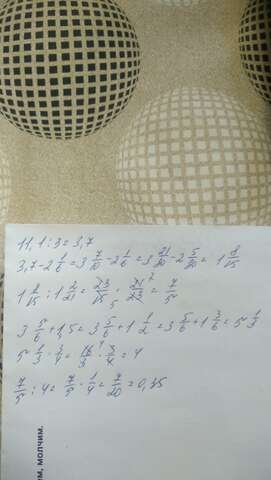 11,1 : 3 = 3,7
3,7 - 2 1/6 = 3 7/10 - 2 1/6 = 3 21/30 - 2 5/30 = 1 8/15
1 8/15 : 1 2/21 = 23/15 · 21/23 = 7/5
3 5/6 + 1,5 = 3 5/6 + 1 1/2 = 3 5/6 + 1 3/6 = 5 1/3
5 1/3 · 3/4 = 16/3 · 3/4 = 4
7/5 : 4 = 7/5 · 1/4 = 7/20 = 0,35
им, молчим.